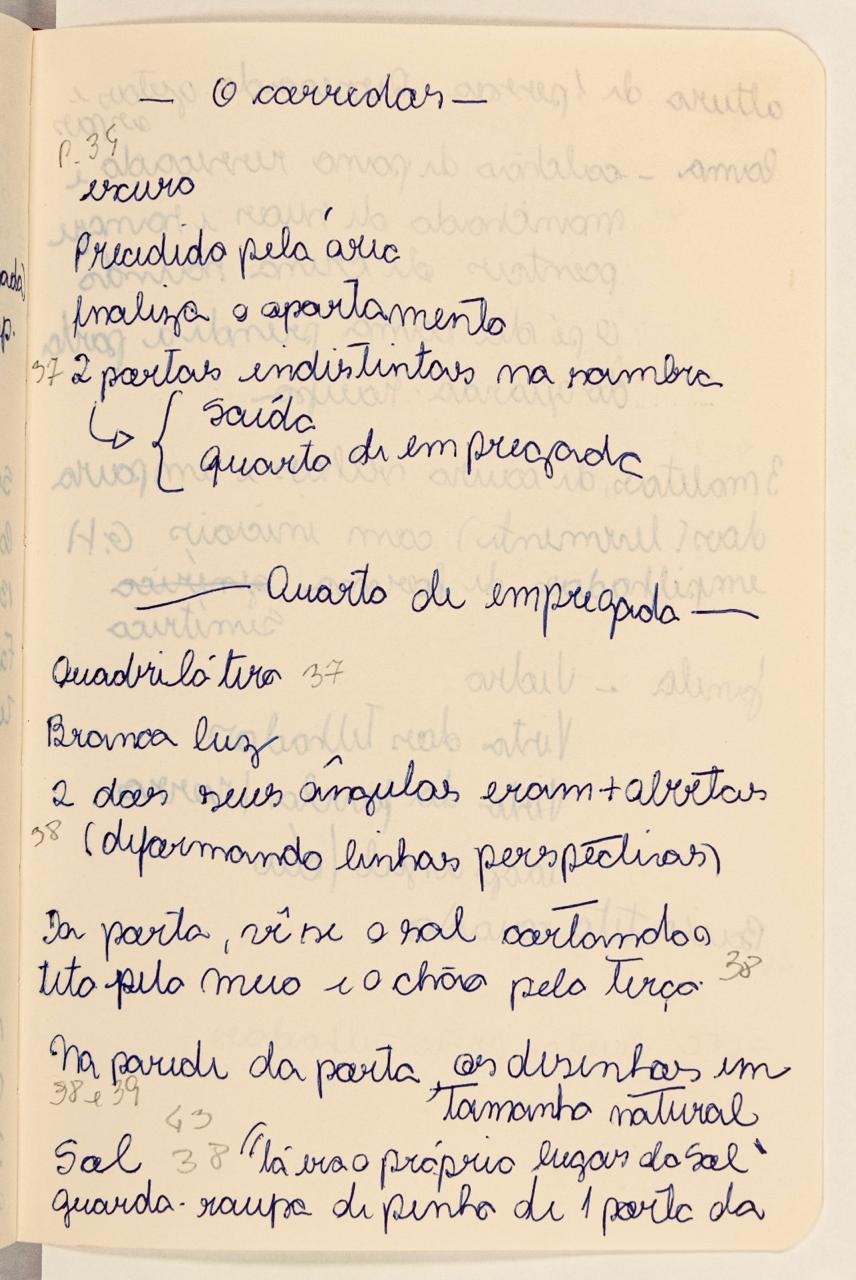 — O corredor —
P. 34
escuro
Precedido pela área
finaliza o apartamento
37 2 portas indistintas na sombra
↳ { Saída
quarto de empregada
— Quarto de empregada —
Quadrilátero 37
Branca luz
2 dos seus ângulos eram + abertos
38 (deformando linhas perspectivas)
Da porta, vê-se o sol cortando o
teto pelo meio e o chão pelo terço. 38
Na parede da porta, os desenhos em
tamanho natural
38 e 39
43
Sol 38 "lá era o próprio lugar do sol"
guarda-roupa de pinho de 1 porta da